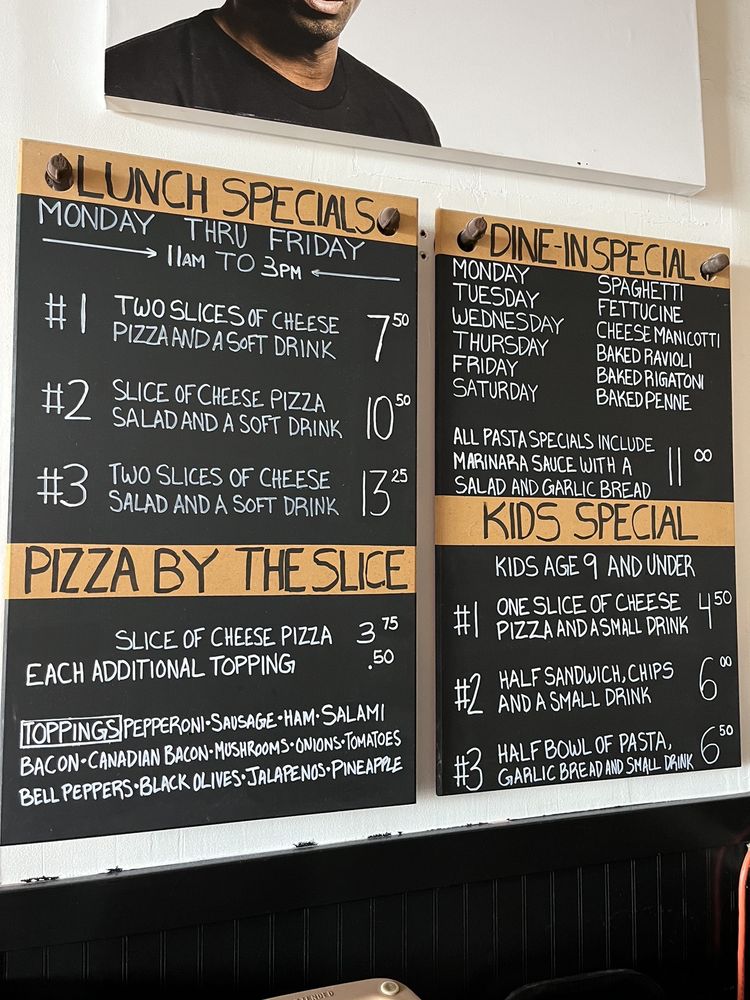 LUNCH SPECIALS
MONDAY THRU FRIDAY
11AM TO 3PM
#1 TWO SLICES OF CHEESE
PIZZA AND A SOFT DRINK 7 50
#2 SLICE OF CHEESE PIZZA
SALAD AND A SOFT DRINK 10 50
#3 TWO SLICES OF CHEESE
SALAD AND A SOFT DRINK 13 25
PIZZA BY THE SLICE
SLICE OF CHEESE PIZZA 3 75
EACH ADDITIONAL TOPPING .50
TOPPINGS PEPPERONI•SAUSAGE•HAM•SALAMI
BACON•CANADIAN BACON•MUSHROOMS•ONIONS•TOMATOES
BELL PEPPERS•BLACK OLIVES•JALAPENOS•PINEAPPLE
DINE-IN SPECIAL
MONDAY SPAGHETTI
TUESDAY FETTUCINE
WEDNESDAY CHEESE MANICOTTI
THURSDAY BAKED RAVIOLI
FRIDAY BAKED RIGATONI
SATURDAY BAKED PENNE
ALL PASTA SPECIALS INCLUDE
MARINARA SAUCE WITH A 11 00
SALAD AND GARLIC BREAD
KIDS SPECIAL
KIDS AGE 9 AND UNDER
#1 ONE SLICE OF CHEESE 4 50
PIZZA AND A SMALL DRINK
#2 HALF SANDWICH, CHIPS 6 00
AND A SMALL DRINK
#3 HALF BOWL OF PASTA, 6 50
GARLIC BREAD AND SMALL DRINK